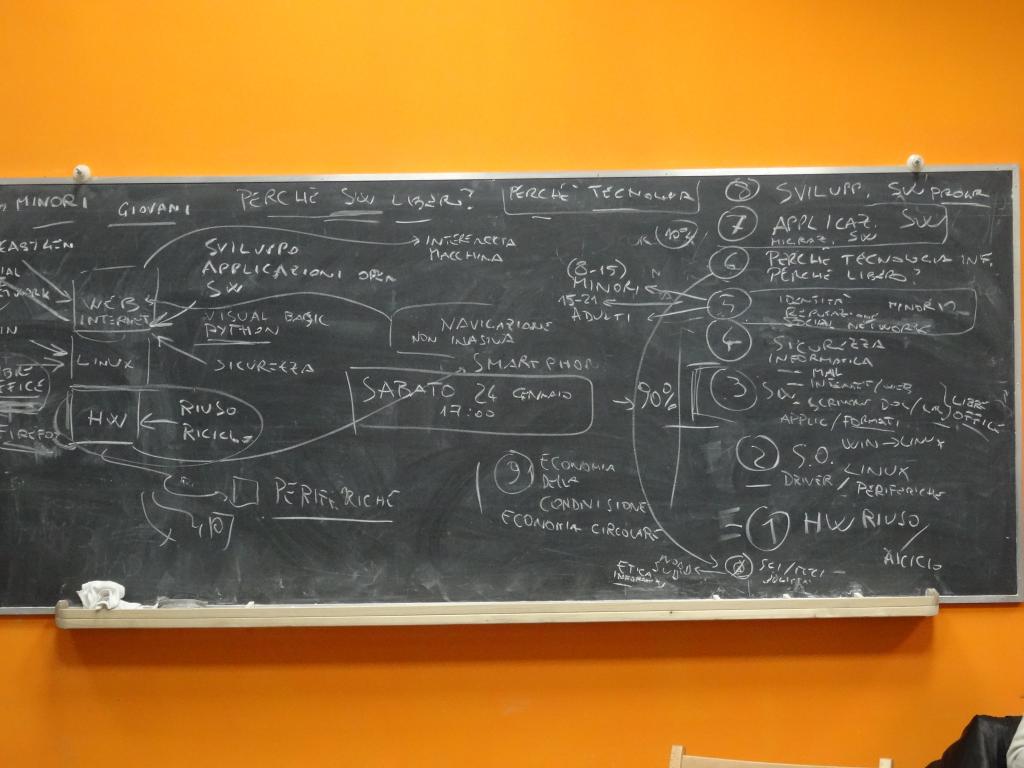 MINORI
GIOVANI
PERCHÈ SW LIBERO?
PERCHÈ TECNOLOGIA
SVILUPPO
APPLICAZIONI OPEN
SW
INTERFACCIA
MACCHINA
WEB
INTERNET
VISUAL BASIC
PYTHON
LINUX
SICUREZZA
NAVIGAZIONE
NON INASIVA
SMARTPHON
HW
RIUSO
RICICLO
FIREFOX
OFFICE
SABATO 24 GENNAIO
17:00
PERIFERICHE
9 ECONOMIA
DELLA
CONDIVISIONE
ECONOMIA CIRCOLARE
8 SVILUPP. SW
7 APPLICAZ. SW
MIGRAZ. SW
6 PERCHÈ TECNOLOGIA INF.
PERCHÈ LIBERO?
(8-15)
MINORI
15-21
ADULTI
5 IDENTITÀ
REPUTAZIONE
SOCIAL NETWORK
MINORI
4 SICUREZZA
INFORMATICA
90%
3 SW
- MAIL
- INTERNET/WEB
APPLIC/FORMATI
LIBRE
OFFICE
2 S.O. WIN→LINUX
LINUX
DRIVER / PERIFERICHE
= 1 HW RIUSO/
RICICLO
ETICA